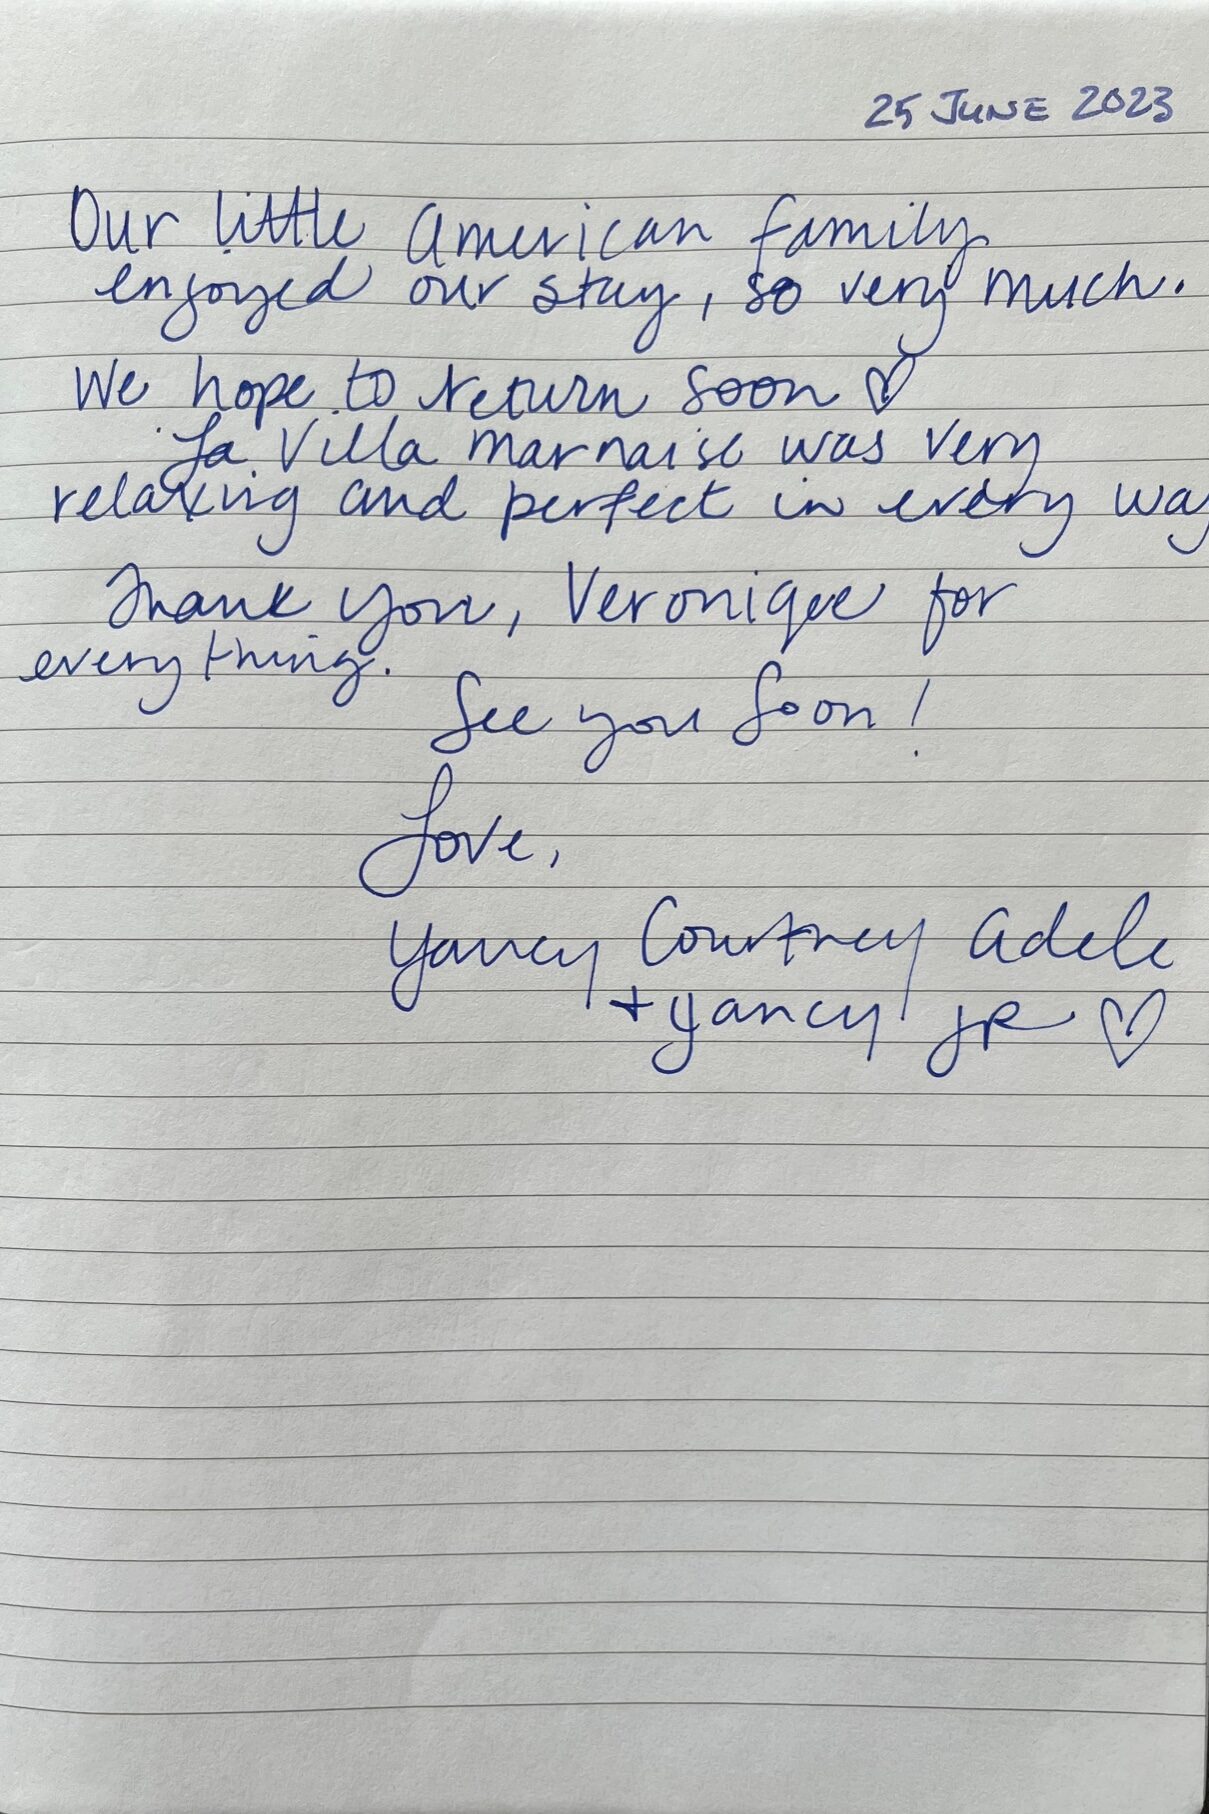 25 JUNE 2023
Our little American family
enjoyed our stay, so very much.
We hope to return soon ♡
La Villa Marnaise was very
relaxing and perfect in every way
Thank you, Veronique for
everything.
See you soon!
Love,
Yancy Courtney Adele
+ Yancy JR ♡